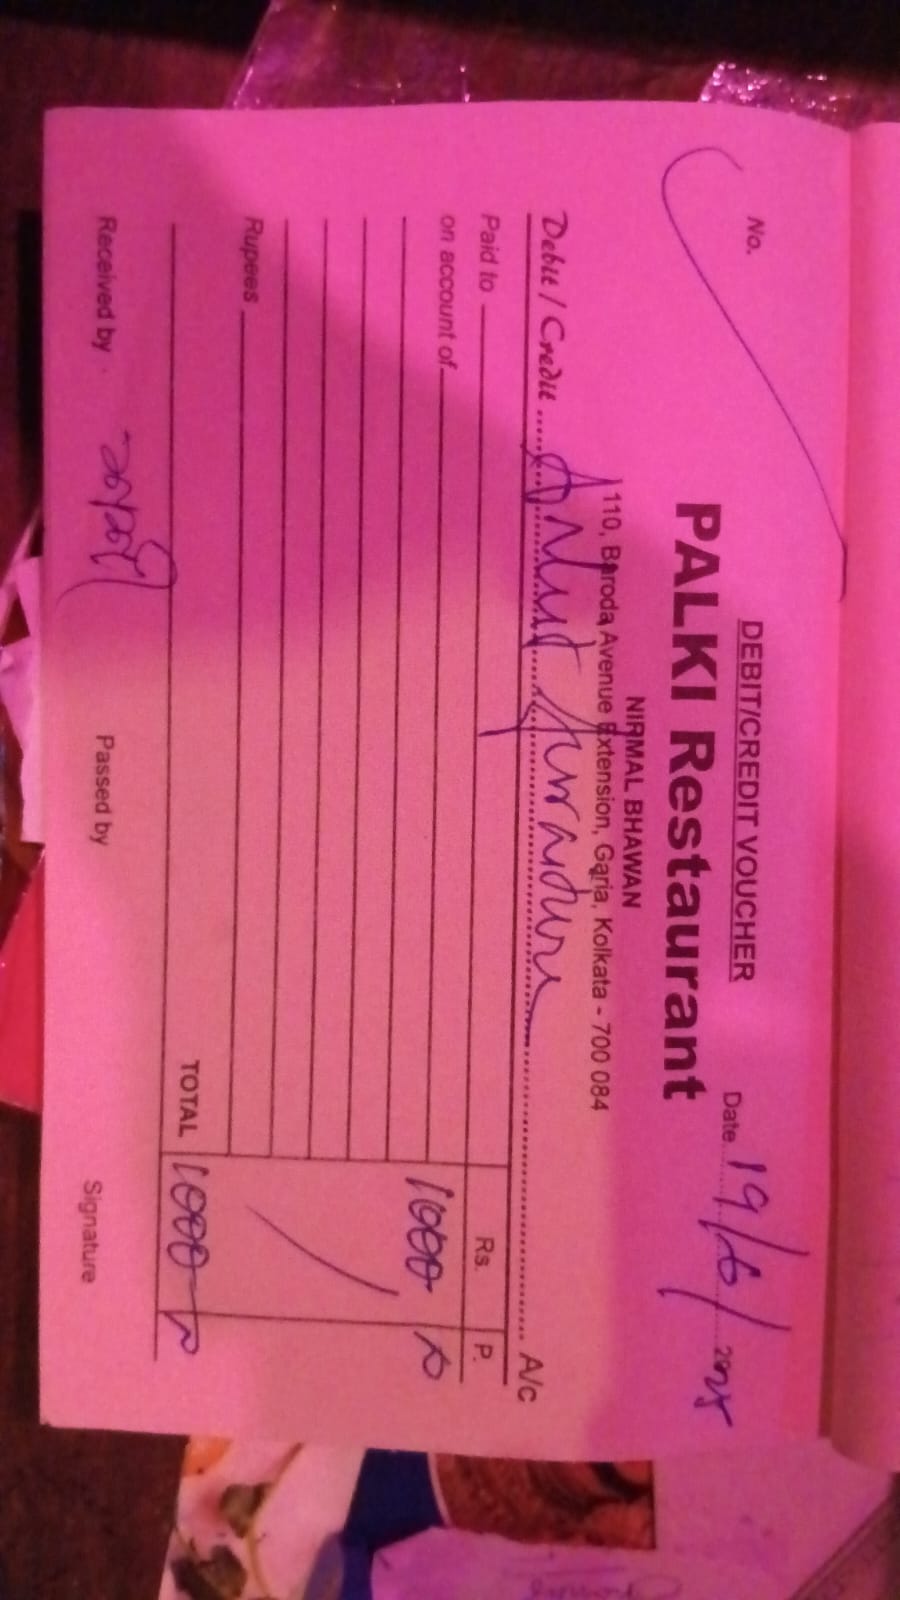 DEBIT/CREDIT VOUCHER
No.
Date 19/6/2025
PALKI Restaurant
NIRMAL BHAWAN
110, Baroda Avenue Extension, Garia, Kolkata - 700 084
Debit / Credit A/c
Paid to Rs. P.
on account of 1000
Rupees
TOTAL 1000
Received by Passed by Signature